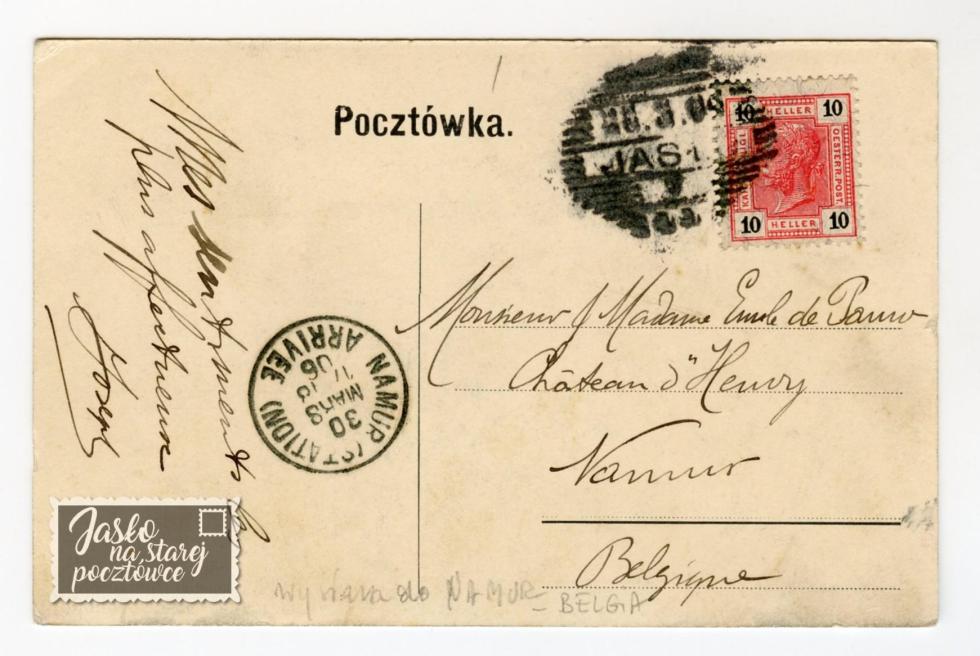 Pocztówka.
28.3.06
JAS
10 HELLER 10
OESTERR. POST.
10 HELLER 10
Mes sentiments les
plus affectueux
Joseph
NAMUR (STATION)
30
MARS
11
06
ARRIVÉE
Monsieur & Madame Emile de
Château d'Henry
Namur
Belgique
Jasło
na starej
pocztówce
wysłana do NAMUR
- BELGIA